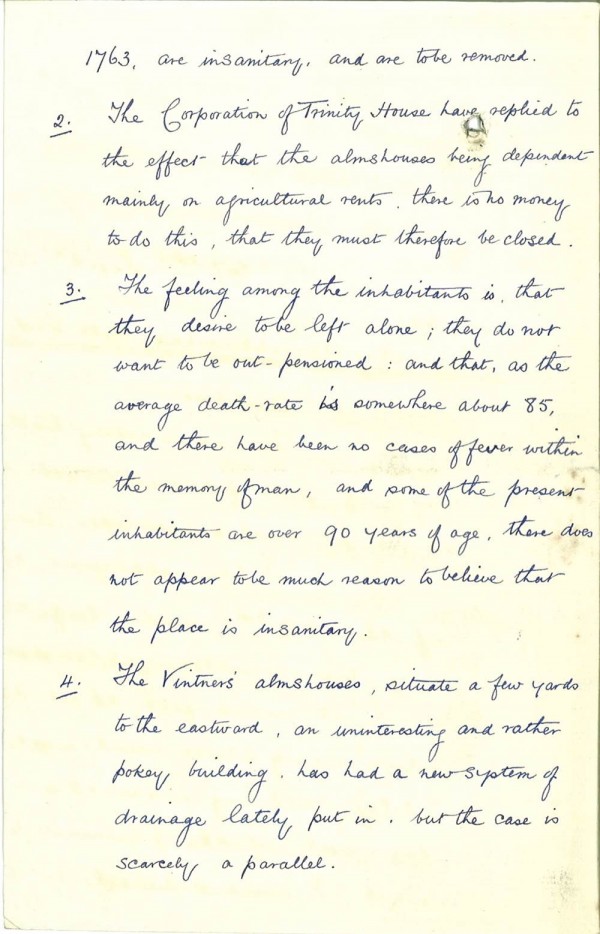 1763, are insanitary, and are to be removed.
2. The Corporation of Trinity House have replied to
the effect that the almshouses being dependent
mainly on agricultural rents, there is no money
to do this, that they must therefore be closed.
3. The feeling among the inhabitants is, that
they desire to be left alone; they do not
want to be out-pensioned: and that, as the
average death-rate is somewhere about 85,
and there have been no cases of fever within
the memory of man, and some of the present
inhabitants are over 90 years of age, there does
not appear to be much reason to believe that
the place is insanitary.
4. The Vintners' almshouses, situate a few yards
to the eastward, an uninteresting and rather
pokey building, has had a new system of
drainage lately put in. but the case is
scarcely a parallel.